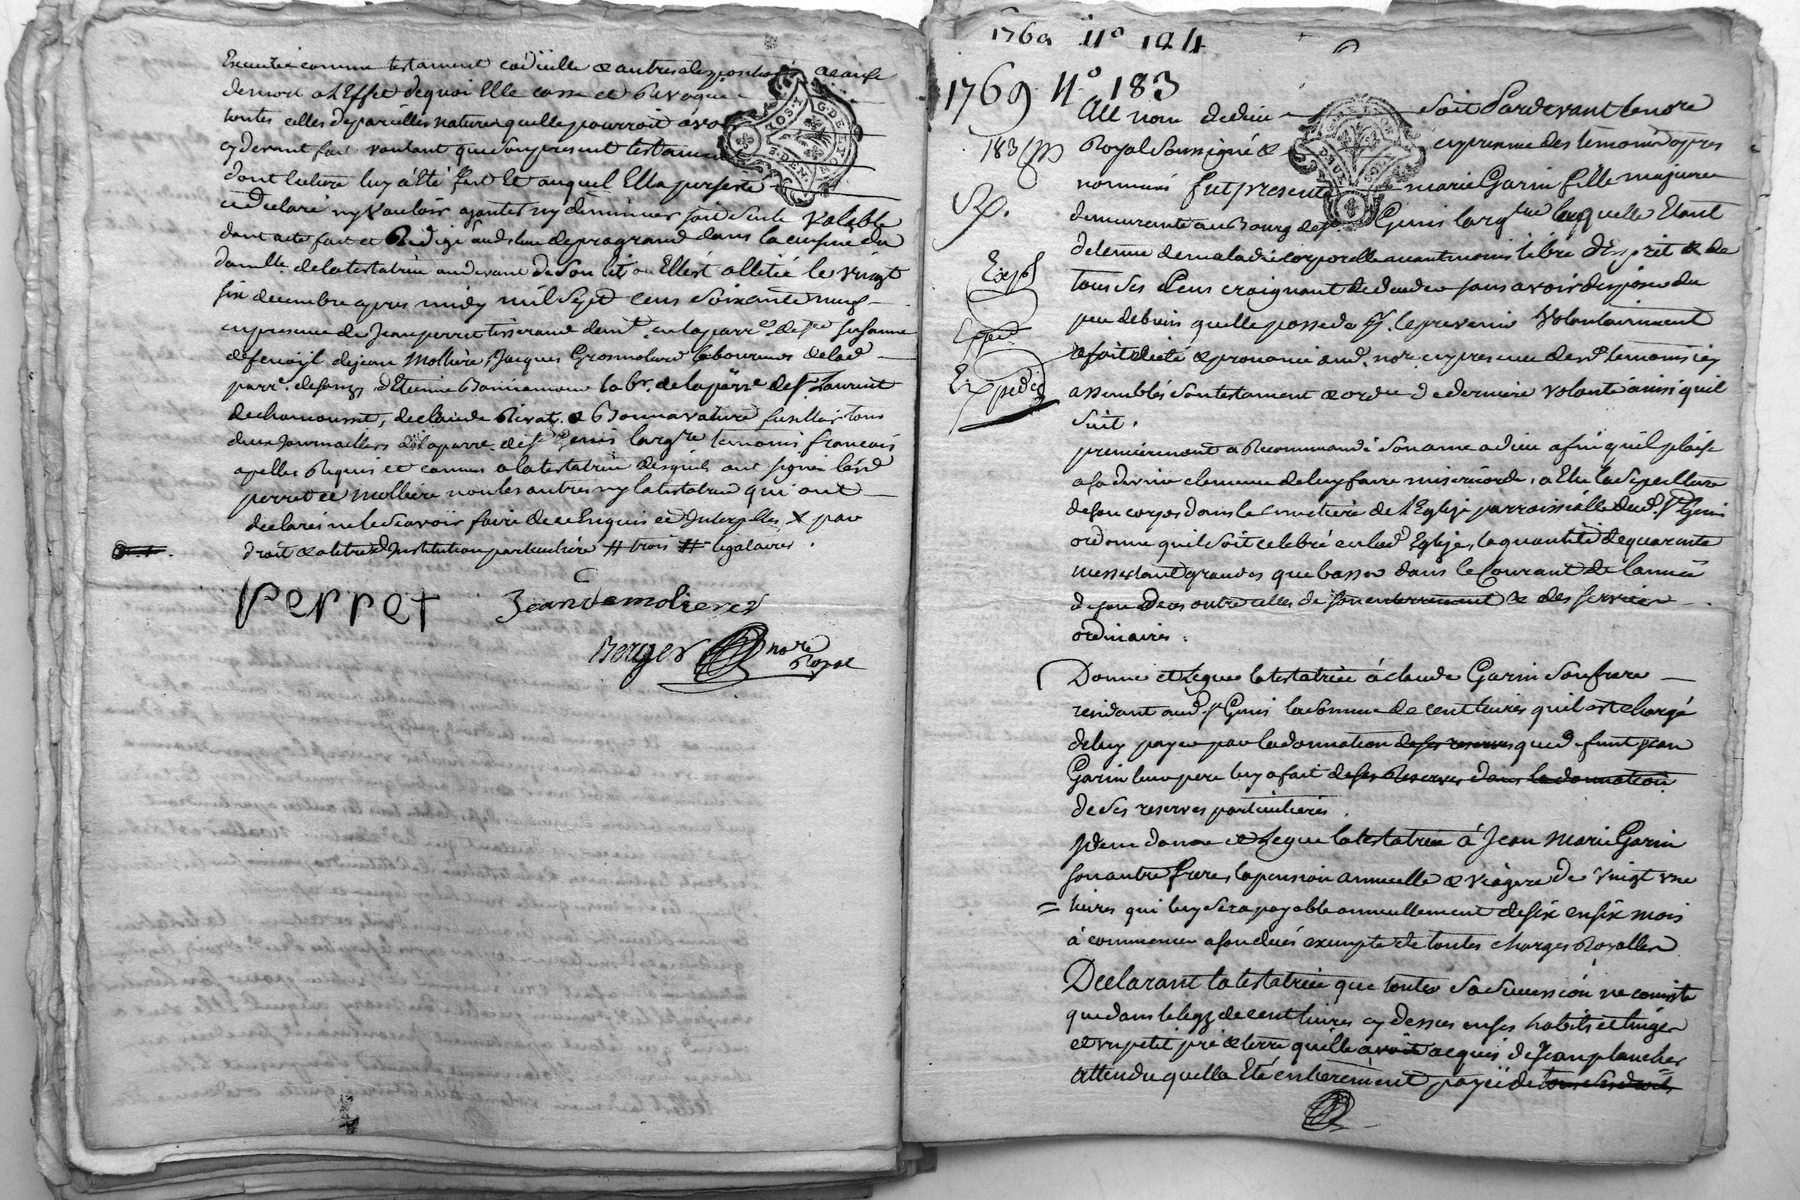 Executée comme testament codicille & autres dispositions a cause
de mort a L'Effet de quoi Elle casse et Revoque
toutes celles de pareilles natures quelle pourroit avoir
cy devant fait voulant que son present testament
dont lecture luy a été fait et auquel Ella persisté
a declaré ny vouloir ajouter ny diminuer soit seule valable
dont acte fait et Redigé aud. lieu de pragrand dans la cuisine du
domlle de la testatrice au devant de son lit ou Elle est allitié le vingt
six decembre apres midy mil Sept cens soixante neuf
en presence de Jean perret tisserand demt. en la parre. de ste Susanne
de Jean Molliere, Jacques Grosmolard laboureurs de lad.
parre. d'Etienne labr. de la parre. de St. Laurent
de chamousset, de claude Rivat, & Bonnavature fusillier tous
deux Journaillers de la parre. de st Genis largre temoins francois
apellés Requis et connus a la testatrice desquels ont signé led.
perret et Molliere non les autres ny la testatrice qui ont
declaré ne le scavoir faire de ce Enquis et Interpellés X par
droit & a titre d'Institution particulière # trois # legataires.
Perret Jean demolieres
Berger nore
Royal
1769 No 184
1769 No 183
183
Au nom de dieu soit Pardevant le nore
Royal Soussigné & en presence des temoins apres
nommés fut presente marie Garin fille majeure
demeurante au Bourg de st. Genis largre laquelle Etant
detenue de maladie corporelle neantmoins libre d'Esprit & de
tous ses sens craignant de deceder sans avoir disposé du
peu de biens quelle possede le prevenir Volontairement
a fait dicté & prononcé aud. nore. en presence desd. temoins icy
assemblés son testament & ordre de derniere volonté ainsi quil
suit.
premierement a Recommandé son ame a dieu afin quil plaise
a sa divine clemence de luy faire misericorde, a Elu la sepulture
de son corps dans le cimetière de l'Eglise parroissialle dud. St Genis
ordonne quil soit celebré en lad. Eglise, la quantité de quarante
messes tant grandes que basses dans le Courant de l'année
de son deces outre celles de son enterrement & des services
ordinaires.
Donne et Legue la testatrice à claude Garin son frere
residant aud. st Genis la somme de cent livres quil est chargé
de luy payer par la donnation de ses reserves que d. funt jean
Garin leur pere luy a fait de ses Reserves dans la donnation
de ses reserves particulieres.
Idem donne et Legue la testatrice à Jean Marie Garin
son autre frere, la pension annuelle & viagere de vingt une
livres qui luy sera payable annuellement de six en six mois
à commencer a son decés exempte de toutes charges Royalles
Declarant la testatrice que toutes sa succession ne consiste
que dans le legz de cent livres cy dessus en ses habits et linges
et un petit pré & terre quelle avoit acquis de Jean plancher
Attendu quella Eté entierement payée de tous ses droits